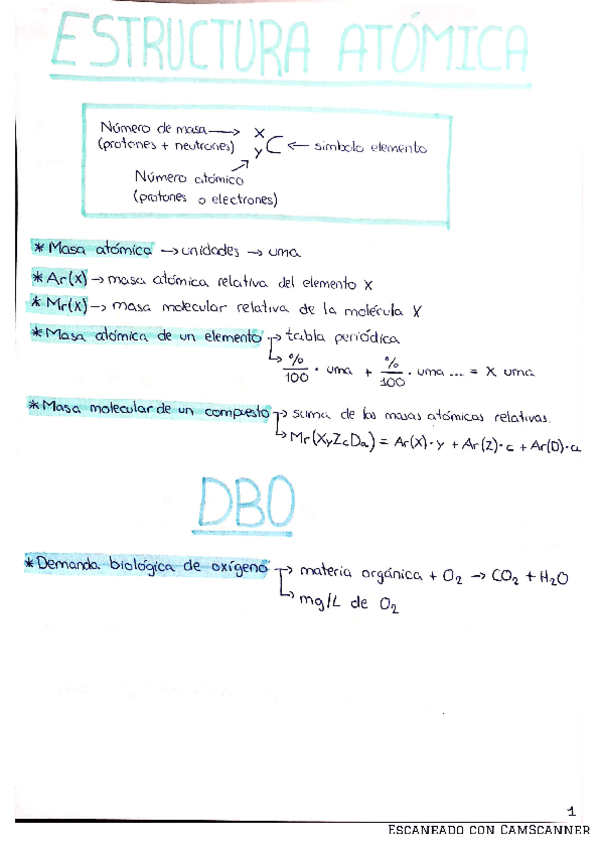 ESTRUCTURA ATÓMICA
Número de masa → X
(protones + neutrones) y C ← simbolo elemento
Número atómico
(protones o electrones)
* Masa atómica → unidades → uma
* Ar(X) → masa atómica relativa del elemento X
* Mr(X) → masa molecular relativa de la molécula X
* Masa atómica de un elemento → tabla periódica
↳ %/100 · uma + %/100 · uma ... = X uma
* Masa molecular de un compuesto → suma de las masas atómicas relativas.
↳ Mr(XyZcDa) = Ar(X)·y + Ar(Z)·c + Ar(D)·a
DBO
* Demanda biológica de oxígeno → materia orgánica + O₂ → CO₂ + H₂O
↳ mg/L de O₂
1
ESCANEADO CON CAMSCANNER